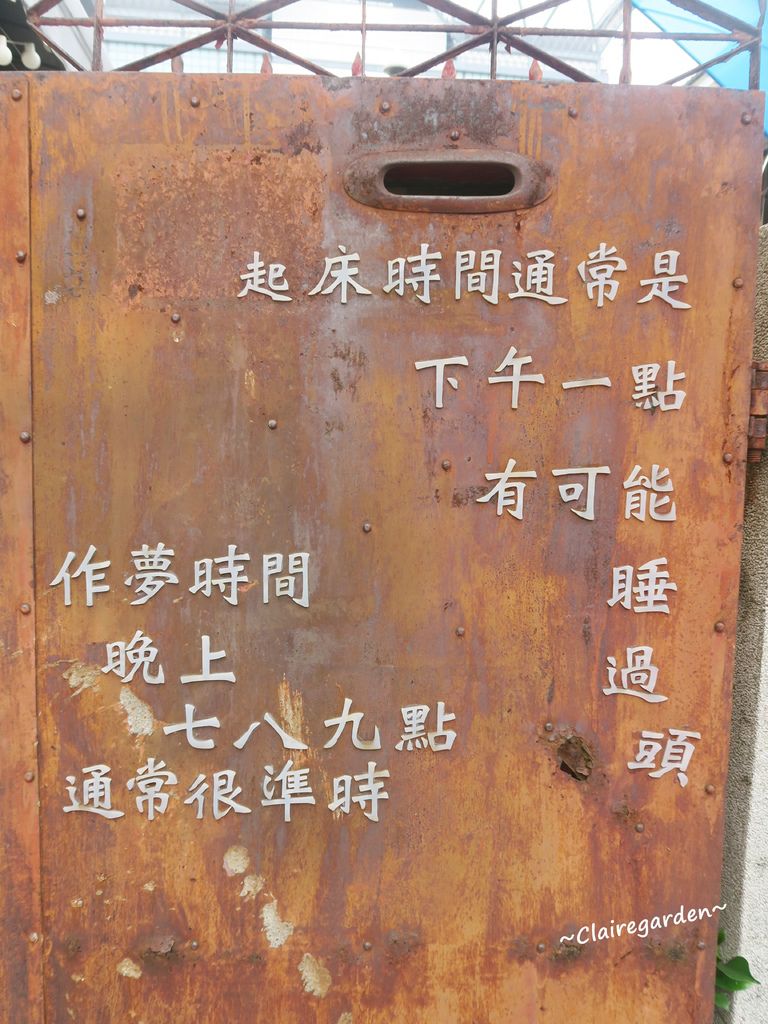 起床時間通常是
下午一點
有可能
睡
過
頭
作夢時間
晚上
七八九點
通常很準時
~Clairegarden~